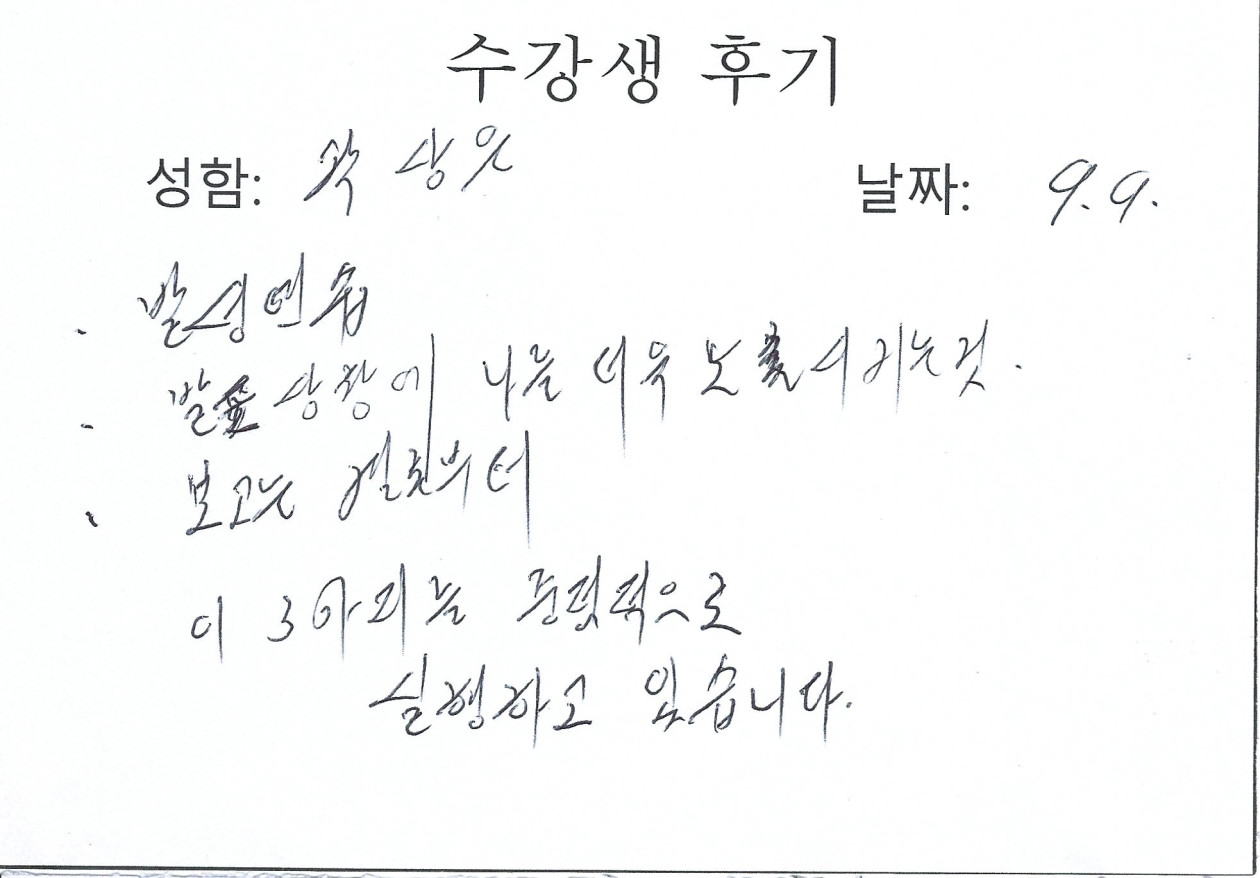 수강생 후기
성함: 곽상옷 날짜: 9.9.
발성연습
발표 상황에 나를 더욱 노출시키는것.
보고는 결론부터
이 3가지는 중점적으로
실행하고 있습니다.